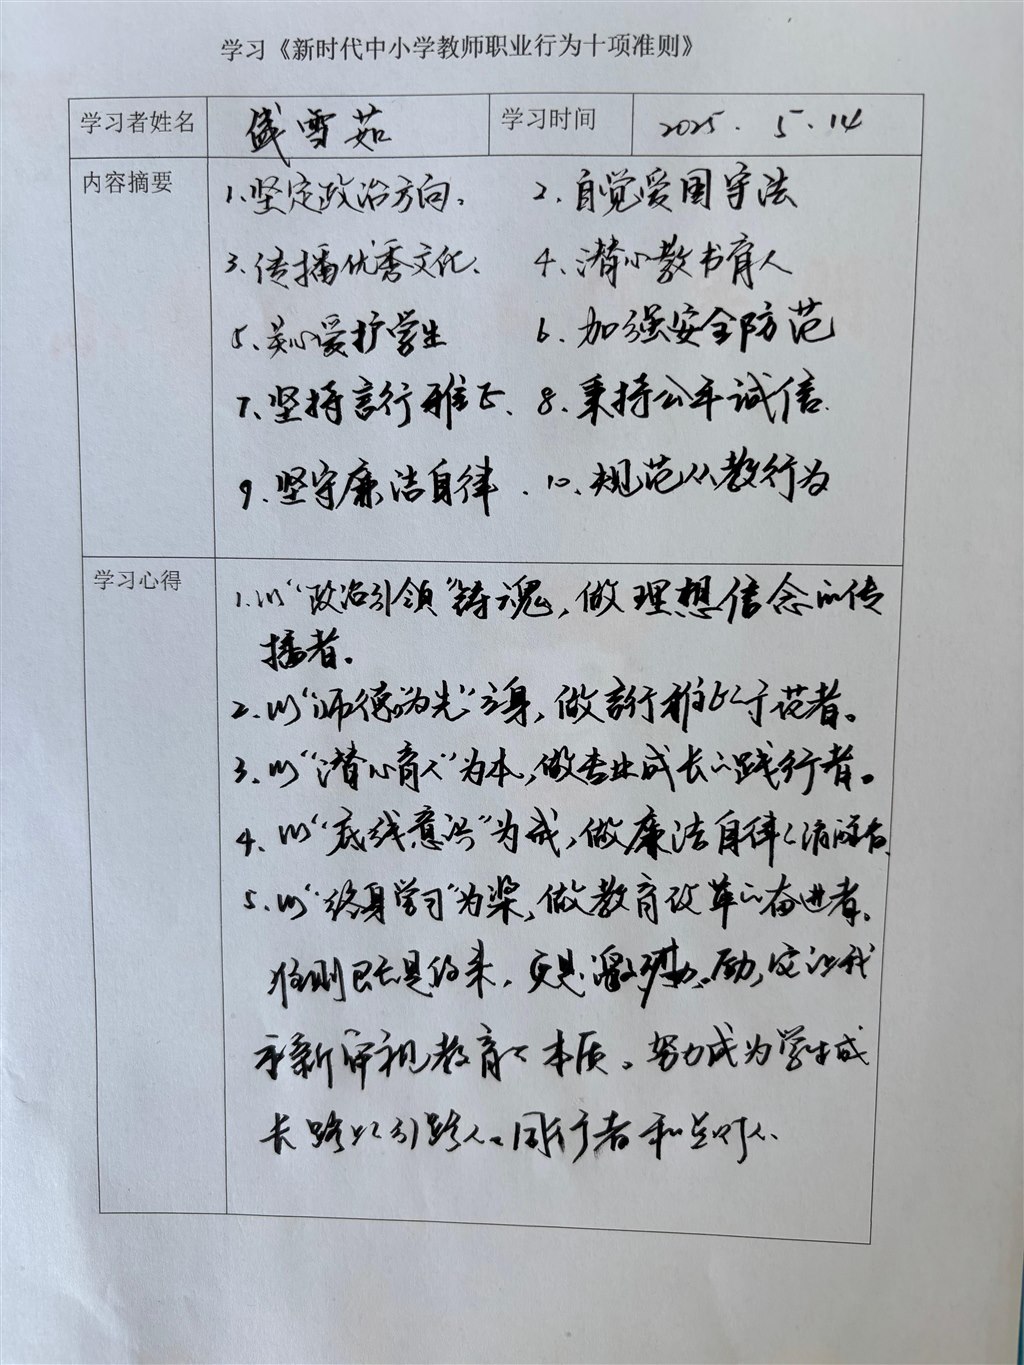 学习《新时代中小学教师职业行为十项准则》
学习者姓名 盛雪茹 学习时间 2025.5.14
内容摘要 1.坚定政治方向. 2.自觉爱国守法
3.传播优秀文化、 4.潜心教书育人
5、关心爱护学生 6.加强安全防范
7、坚持言行雅正、 8.秉持公平诚信.
9.坚守廉洁自律. 10、规范从教行为
学习心得 1.以“政治引领”铸魂,做理想信念的传
播者.
2.以“师德为先”立身,做言行雅正的示范者。
3.以“潜心育人”为本,做专业成长的践行者。
4、以“底线意识”为戒,做廉洁自律的清醒者.
5.以“终身学习”为桨,做教育改革的奋进者.
准则既是约束,更是激励,它让我
重新审视教育的本质。努力成为学生成
长路上引路人、同行者和点灯人.